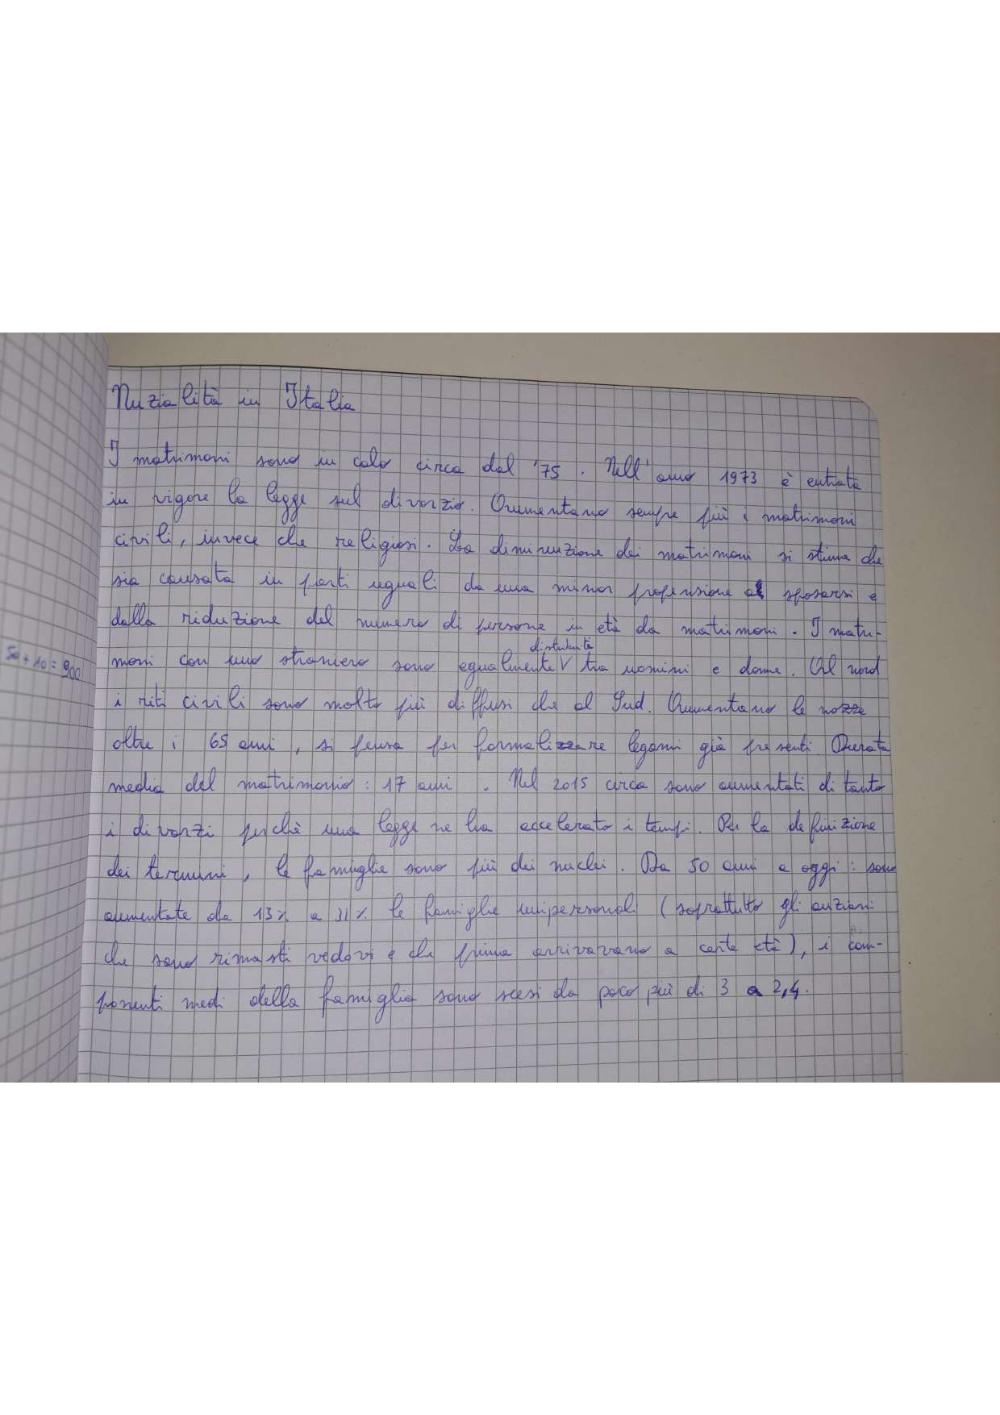 Nuzialità in Italia
I matrimoni sono in calo circa dal '75. Nell'anno 1973 è entrata
in vigore la legge sul divorzio. Aumentano sempre più i matrimoni
civili, invece che religiosi. La diminuzione dei matrimoni si stima che
sia causata in parti uguali da una minor propensione a sposarsi e
dalla riduzione del numero di persone in età da matrimoni. I matri-
distribuiti
moni con uno straniero sono egualmente V tra uomini e donne. Al nord
50 + 10 = 900
i riti civili sono molto più diffusi che al Sud. Aumentano le nozze
oltre i 65 anni, si pensa per formalizzare legami già presenti Durata
media del matrimonio: 17 anni. Nel 2015 circa sono aumentati di tanto
i divorzi perché una legge ne ha accelerato i tempi. Per la definizione
dei termini, le famiglie sono più dei nuclei. Da 50 anni a oggi: sono
aumentate da 13% a 31% le famiglie unipersonali (soprattutto gli anziani
che sono rimasti vedovi e che prima arrivavano a certe età), i com-
ponenti medi della famiglia sono scesi da poco più di 3 a 2,4.